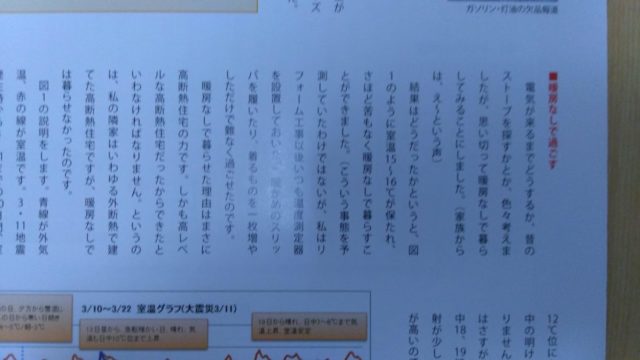 ガソリン・灯油の欠品報道
■暖房なしで過ごす
電気が来るまでどうするか、昔の
ストーブを探すかとか、色々考えま
したが、思い切って暖房なしで暮ら
してみることにしました。（家族から
は、え〜という声）
結果はどうだったかというと、図
1のように室温15〜16℃が保たれ、
さほど苦もなく暖房なしで暮らすこ
とができました。（こういう事態を予
測していたわけではないが、私はリ
フォーム工事以後いつも温度測定器
を設置しておいた）暖かめのスリッ
パを履いたり、着るものを一枚増や
しただけで難なく過ごせたのです。
暖房なしで暮らせた理由はまさに
高断熱住宅の力です。しかも高レベ
ルな高断熱住宅だったからできたと
いわなければなりません。というの
は、私の隣家はいわゆる外断熱で建
てた高断熱住宅ですが、暖房なしで
は暮らせなかったのです。
図1の説明をします。青線が外気
温、赤の線が室温です。3・11地震
12℃位に
中の明け
りません
はさすが
中18、19
射が少し
が高いの
3/10〜3/22 室温グラフ(大震災3/11)